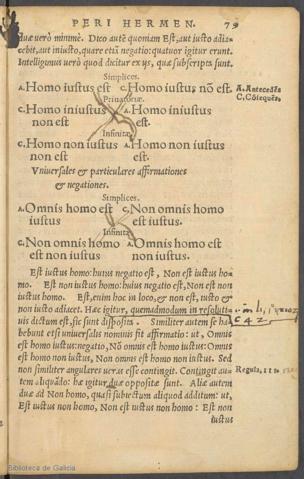 PERI HERMEN. 79
duæ verò minimè. Dico autē quoniam Est, aut iusto adia-
cebit, aut iniusto, quare etiā negatio: quatuor igitur erunt.
Intelligimus verò quod dicitur ex ijs, quæ subscripta sunt.
Simplices.
A. Homo iustus est C. Homo iustus nō est.
A. Antecedēs
C. Cōsequēs.
Priuatoriæ.
C. Homo iniustus A. Homo iniustus
non est est.
Infinitæ
C. Homo non iustus A. Homo non iustus
non est est.
Vniuersales & particulares affirmationes
& negationes.
Simplices.
A. Omnis homo est C. Non omnis homo
iustus est iustus.
Infinitæ
C. Non omnis homo A. Omnis homo est
est non iustus non iustus.
Est iustus homo: huius negatio est, Non est iustus ho-
mo. Est non iustus homo: huius negatio est, Non est non
iustus homo. Est, enim hoc in loco, & non est, iusto & non
iusto adiacet. Hæc igitur, quemadmodum in resolutio-
nis dictum est, sic sunt disposita. Similiter autem se ha-
bebunt etsi vniuersalis nominis sit affirmatio: ut, Omnis
est homo iustus: negatio, Nō omnis est homo iustus: Omnis
est homo non iustus, Non omnis est homo non iustus. Sed
non similiter angulares veras esse contingit. Contingit au-
tem aliquādo: hæ igitur duæ oppositæ sunt. Aliæ autem
Regula,
duæ ad Non homo, quasi subiectum aliquod additum: ut,
Est iustus non homo, Non est iustus non homo: Est non
iustus
Biblioteca de Galicia